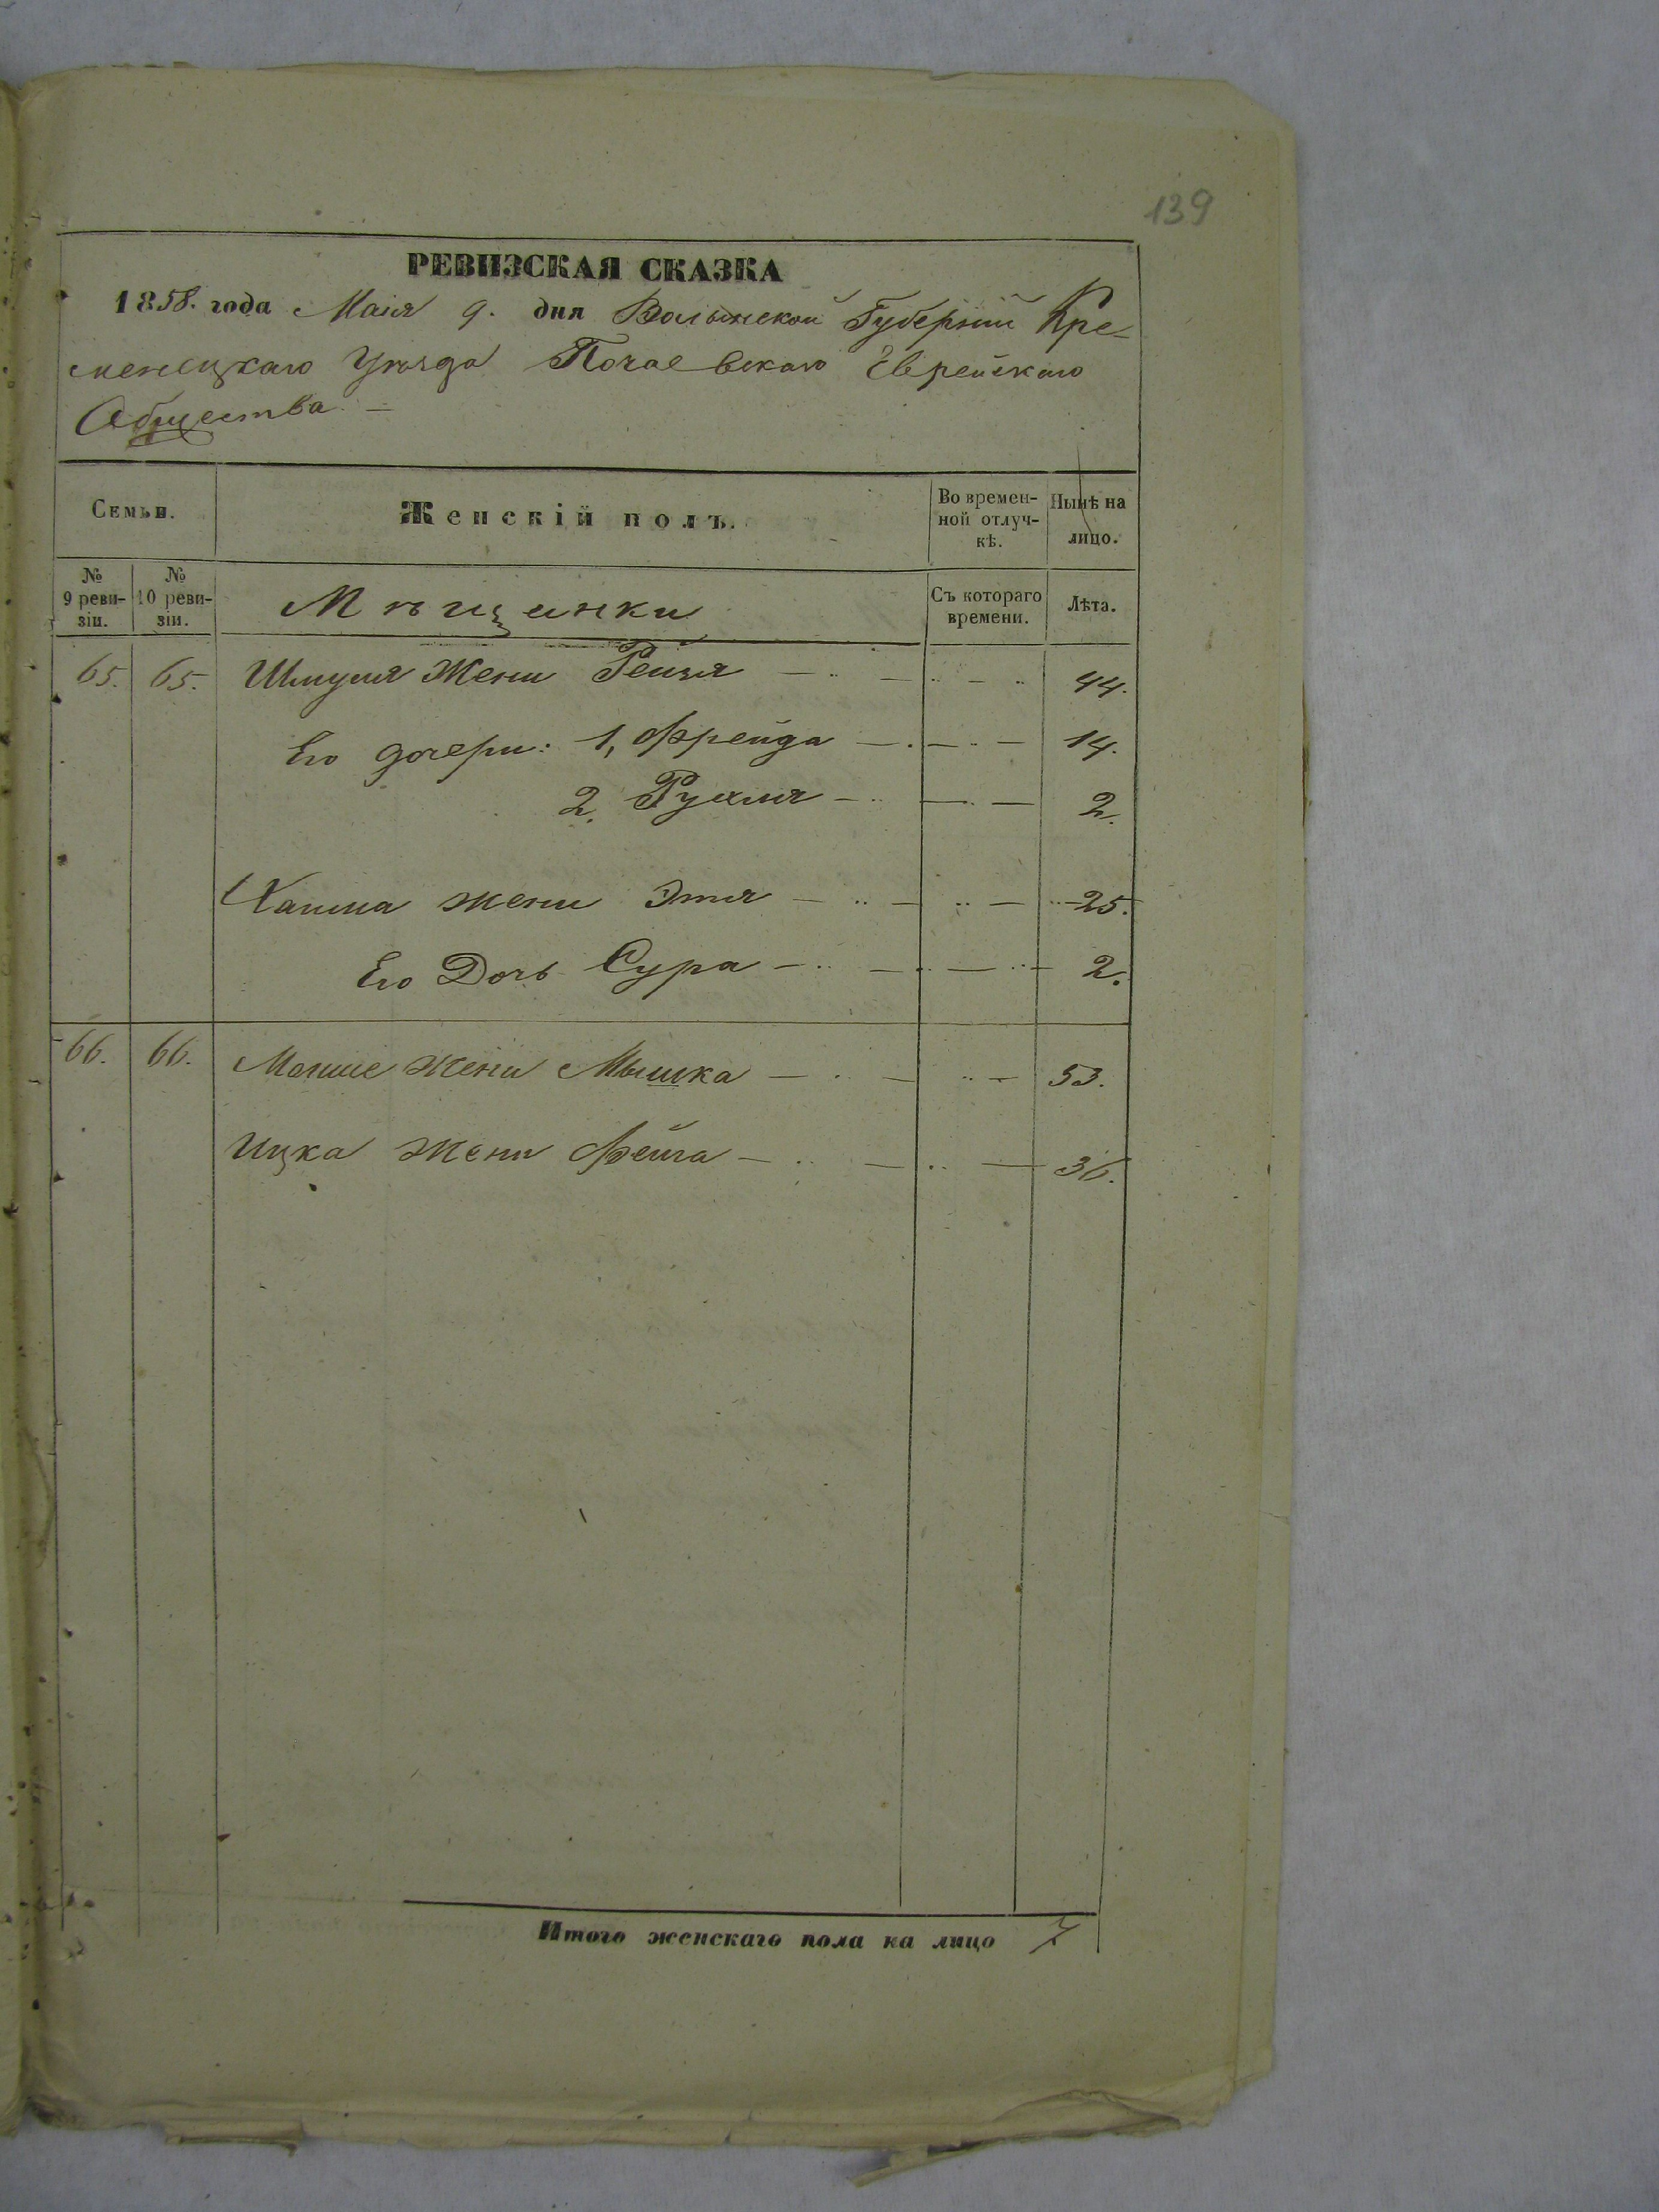 139
РЕВИЗСКАЯ СКАЗКА
1858. года Маія 9. дня Волынской Губерніи Кре-
менецкаго Уѣзда Почаевскаго Еврейскаго
Общества
Семьи.
Женскій полъ.
Во времен-
ной отлуч-
кѣ.
Нынѣ на
лицо.
№
9 реви-
зіи.
№
10 реви-
зіи.
Мѣщанки
Съ котораго
времени.
Лѣта.
65. 65. Шмуля жена Рейзя 44.
Его дочери: 1, Фрейда 14.
2. Рухля 2.
Хаима жена Этя 25.
Его Дочь Сура 2.
66. 66. Мошие жена Мышка 53.
Ицка жена Фейга 36.
Итого женскаго пола на лицо 7